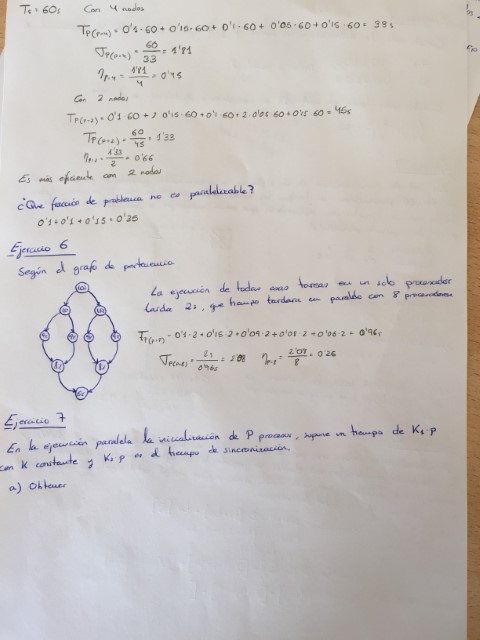 Ts = 60s   Con 4 nodos
Tp(p=4) = 0'1·60 + 0'15·60 + 0'1·60 + 0'05·60 + 0'15·60 = 33s
σp(p=4) = 60/33 = 1'81
ηp=4 = 1'81/4 = 0'45
Con 2 nodos
Tp(p=2) = 0'1·60 + 2·0'15·60 + 0'1·60 + 2·0'05·60 + 0'15·60 = 45s
Tp(p=2) = 60/45 = 1'33
ηp=2 = 1'33/2 = 0'66
Es más eficiente con 2 nodos
¿Que fracción de problema no es paralelizable?
0'1 + 0'1 + 0'15 = 0'35
Ejercicio 6
Según el grafo de
La ejecución de todas esas tareas en un solo procesador
tarda 2s, que tiempo tardara en paralelo con 8 procesadores
Tp(p=8) = 0'1·2 + 0'15·2 + 0'09·2 + 0'08·2 + 0'06·2 = 0'96s
σp(p=8) = 2s/0'96s = 2'08   ηp=8 = 2'08/8 = 0'26
Ejercicio 7
En la ejecución paralela la inicialización de P procesos, supone un tiempo de K1·p
con K constante y K2·p es el tiempo de sincronización.
a) Obtener